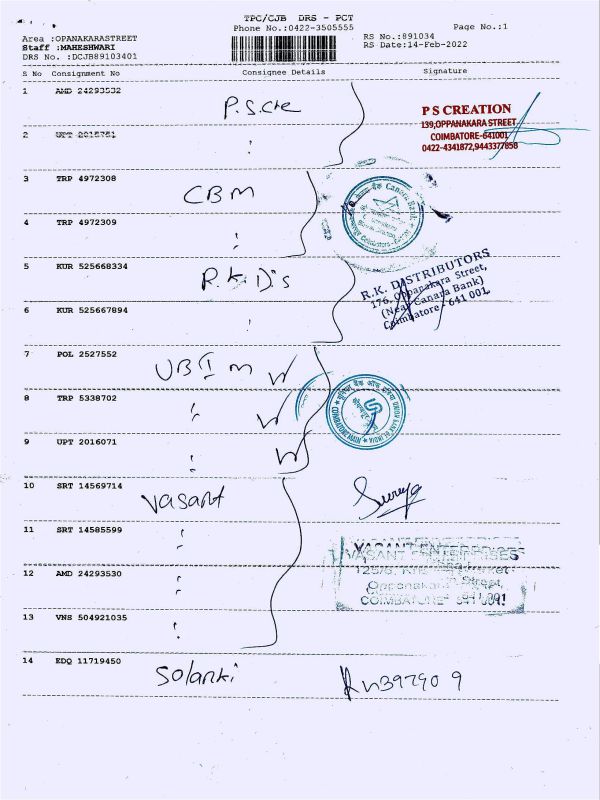 TPC/CJB DRS - PCT
Phone No.:0422-3505555 Page No.:1
Area :OPANAKARASTREET RS No.:891034
Staff :MAHESHWARI RS Date:14-Feb-2022
DRS No. :DCJB89103401
S No Consignment No Consignee Details Signature
1 AMD 24293532 P.S.Cre
P S CREATION
139,OPPANAKARA STREET,
COIMBATORE-641001
0422-4341872,9443377858
2 UPT 2015751 "
3 TRP 4972308 CBM
Canara Bank
4 TRP 4972309 "
5 KUR 525668334 R.K.Dis
R.K. DISTRIBUTORS
176, Oppanakara Street,
(Near Canara Bank)
Coimbatore - 641 001.
6 KUR 525667894 "
7 POL 2527552 UBI M
यूनियन बैंक ऑफ इंडिया UNION BANK OF INDIA
COIMBATORE MAIN
8 TRP 5338702 "
9 UPT 2016071 "
10 SRT 14569714 Vasant Surya
11 SRT 14585599 "
VASANT ENTERPRISES
Oppanakara Street,
COIMBATORE - 641 001
12 AMD 24293530 "
13 VNS 504921035 "
14 EDQ 11719450 Solanki